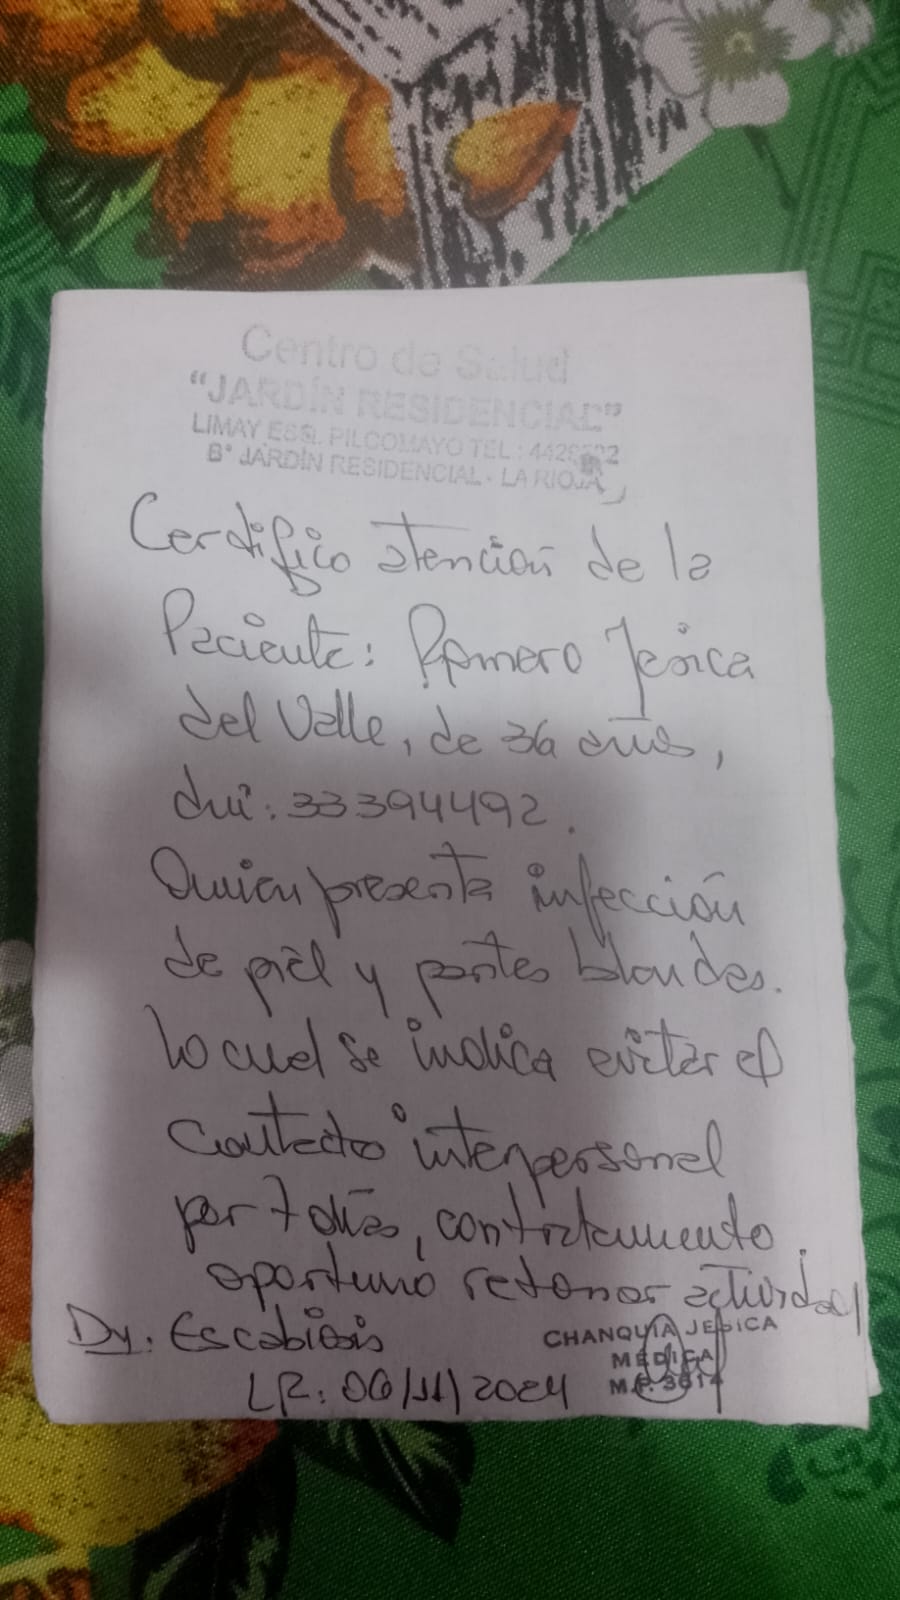 Centro de Salud
"JARDÍN RESIDENCIAL"
LIMAY ESQ. PILCOMAYO TEL: 442
B° JARDÍN RESIDENCIAL - LA RIOJA
Certifico atención de la
Paciente: Romero Jesica
del Valle, de 36 años,
dni: 33394492.
Quien presenta infección
de piel y partes blandas.
Lo cual se indica evitar el
Contacto interpersonal
por 7 días, con tratamiento
oportuno retonar actividad
Dx: Escabiosis
CHANQUÍA JESICA
MÉDICA
M.P. 3614
LR: 06/11/2024